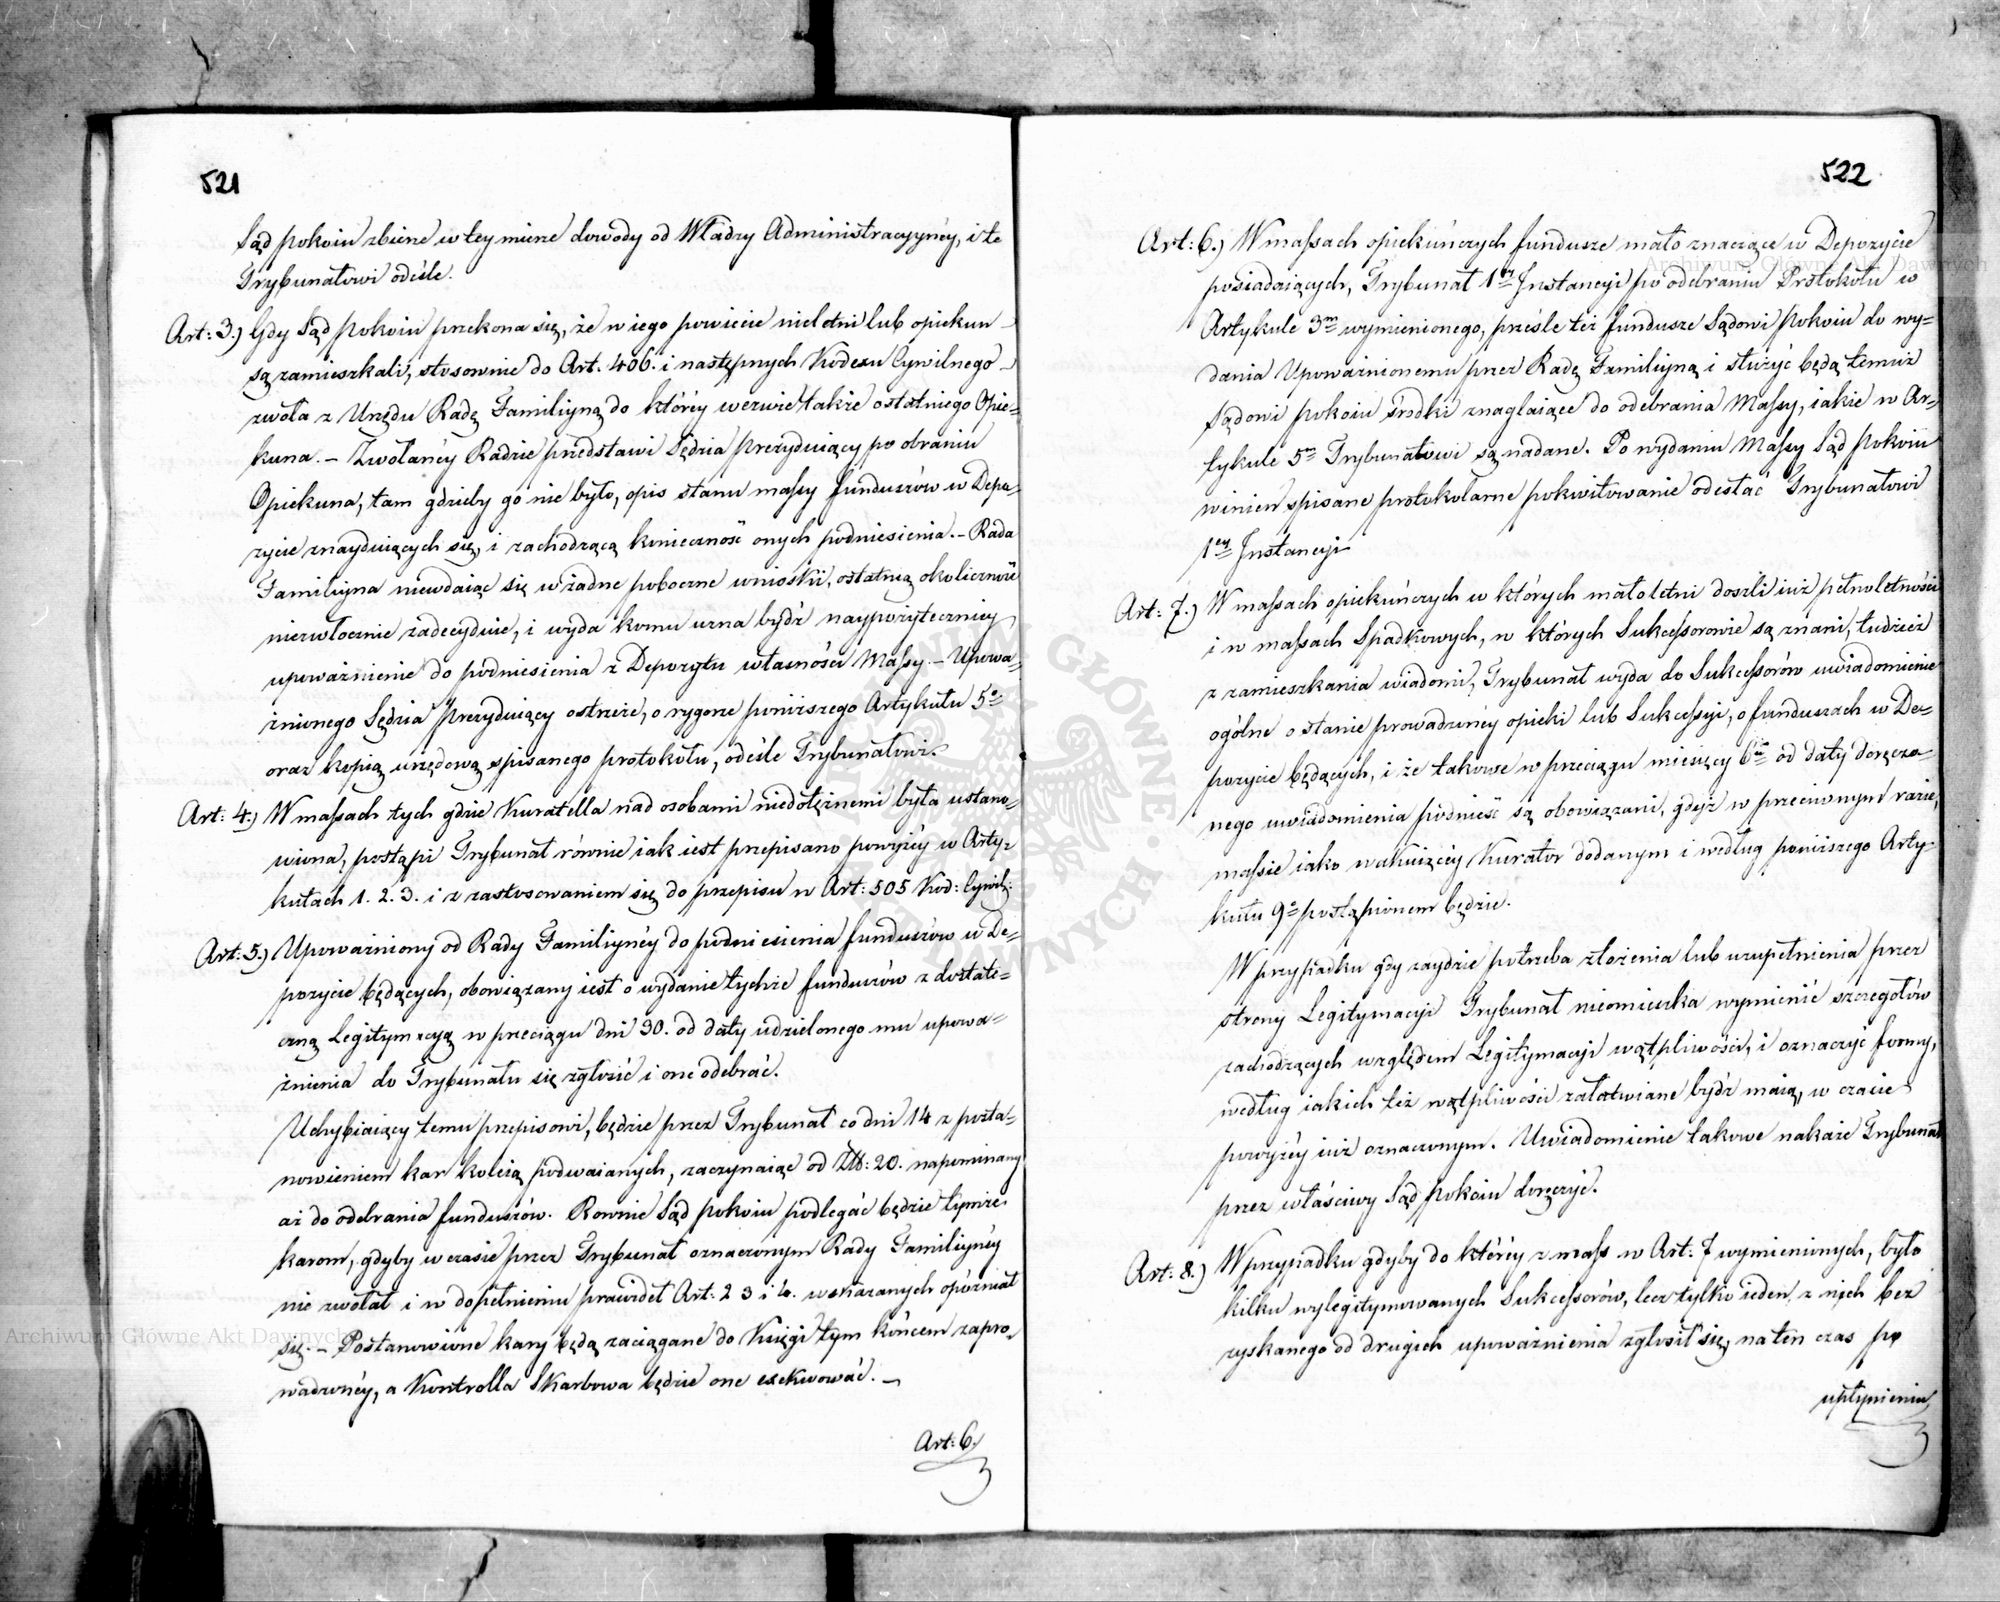 521
Sąd pokoiu zbierze w tey mierze dowody od Władzy Administracyynéy, i te
Trybunałowi odeśle.
Art: 3.) Gdy Sąd pokoiu przekona się, że w iego powiecie nieletni lub opiekun
są zamieszkali, stosownie do Art. 406. i następnych Kodexu Cywilnego
zwoła z Urzędu Radę Familiyną do któréy wezwie także ostatniego Opie=
kuna. – Zwołanéy Radzie przedstawi Sędzia prezyduiący po obraniu
Opiekuna, tam gdzieby go nie było, opis stanu massy funduszów w Depo=
zycie znayduiących się, i zachodzącą konieczność onych podniesienia. – Rada
Familiyna niewdaiąc się w żadne poboczne wnioski, ostatnią okoliczność
niezwłocznie zadecyduie, i wyda komu uzna bydź naypożyteczniéy
upoważnienie do podniesienia z Depozytu własności Massy. – Upowa=
żnionego Sędzia prezyduiący ostrzeże, o rygorze poniższego Artykułu 5º
oraz kopią urzędową spisanego protokołu, odeśle Trybunałowi.
Art: 4.) W massach tych gdzie Kuratella nad osobami niedołężnemi była ustano=
wiona, postąpi Trybunał równie iak iest przepisano powyżéy w Arty=
kułach 1. 2. 3. i z zastosowaniem się do przepisu w Art: 505 Kod: Cywil:
Art: 5.) Upoważniony od Rady Familiynéy do podniesienia funduszów w De=
pozycie będących, obowiązany iest o wydanie tychże funduszów z dostate=
czną Legitymacyą w przeciągu dni 30. od daty udzielonego mu upowa=
żnienia do Trybunału się zgłosić i one odebrać.
Uchybiaiący temu przepisowi, będzie przez Trybunał co dni 14 z posta=
nowieniem kar koleią podwaianych, zaczynaiąc od Zł: 20. napominany
aż do odebrania funduszów. Rownie Sąd pokoiu podlegać będzie tymże
karom, gdyby w czasie przez Trybunał oznaczonym Rady Familiynéy
nie zwołał i w dopełnieniu prawideł Art: 2 3 i 4. wskazanych opóźniał
się. – Postanowione kary będą zaciągane do Księgi tym końcem zapro=
wadzonéy, a Kontrolla Skarbowa będzie one exekwować. –
Art: 6.
522
Art: 6.) W massach opiekuńczych fundusze mało znaczące w Depozycie
posiadaiących, Trybunał 1éy Instancyi po odebraniu Protokołu w
Artykule 3m wymienionego, prześle też fundusze Sądowi pokoiu do wy=
dania Upoważnionemu przez Radę Familiyną i służyć będą temuż
Sądowi pokoiu środki znaglaiące do odebrania Massy, iakie w Ar=
tykule 5m Trybunałowi są nadane. Po wydaniu Massy Sąd pokoiu
winien spisane protokolarne pokwitowanie odesłać Trybunałowi
1éy Instancyi
Art: 7.) W massach opiekuńczych w których małoletni doszli iuż pełnoletności
i w massach Spadkowych, w których Sukcessorowie są znani, tudzież
z zamieszkania wiadomi, Trybunał wyda do Sukcessorów uwiadomienie
ogólne o stanie prowadzonéy opieki lub Sukcessyi, o funduszach w De=
pozycie będących, i że takowe w przeciągu miesięcy 6iu od daty doręczo=
nego uwiadomienia podnieść są obowiązani, gdyż w przeciwnym razie,
massie iako wakuiącéy Kurator dodanym i według poniższego Arty=
kułu 9º postąpionem będzie.
W przypadku gdy zaydzie potrzeba złożenia lub uzupełnienia przez
strony Legitymacyi Trybunał nieomieszka wymienić szczegółów
zachodzących względem Legitymacyi wątpliwości, i oznaczyć formy,
według iakich też wątpliwości załatwiane bydź maią, w czasie
powyżéy iuż oznaczonym. Uwiadomienie takowe nakaże Trybunał
przez właściwy Sąd pokoiu doręczyć.
Art: 8.) W przypadku gdyby do któréy z mass w Art: 7 wymienionych, było
kilku wylegitymowanych Sukcessorów, lecz tylko ieden z nich bez
zyskanego od drugich upoważnienia zgłosił się, na ten czas po
upłynieniu
Archiwum Główne Akt Dawnych
Archiwum Główne Akt Dawnych